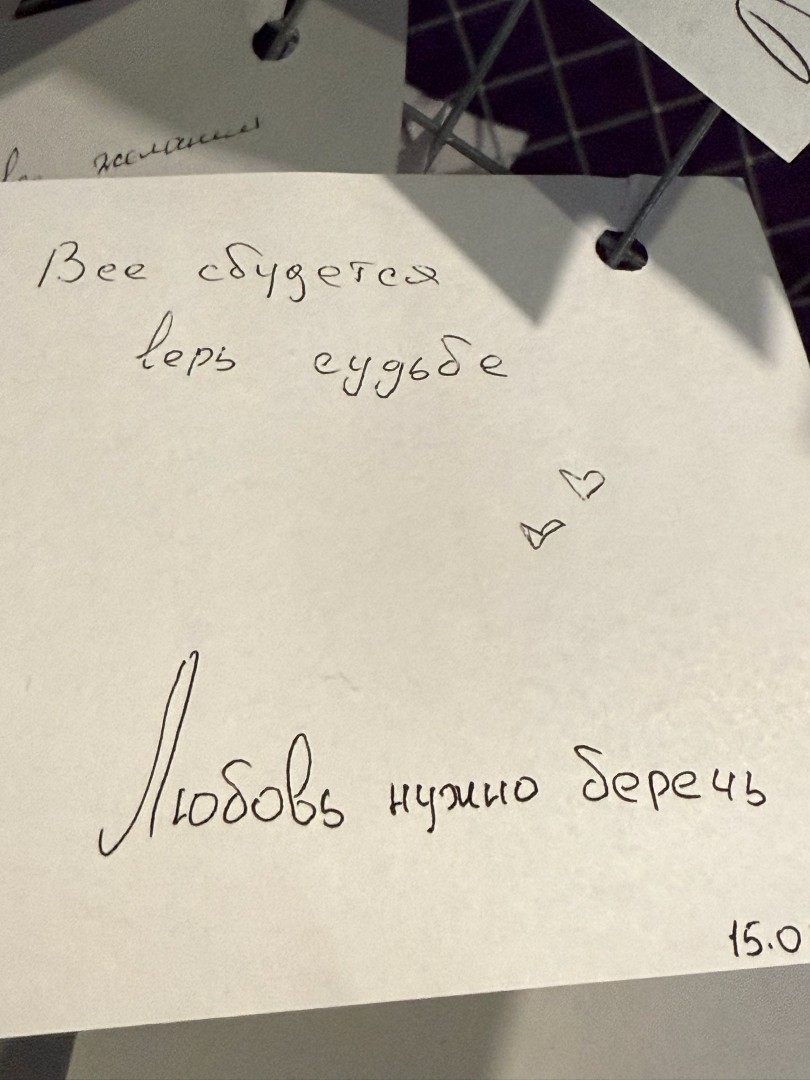 желании
Все сбудется
верь судьбе
Любовь нужно беречь
15.0